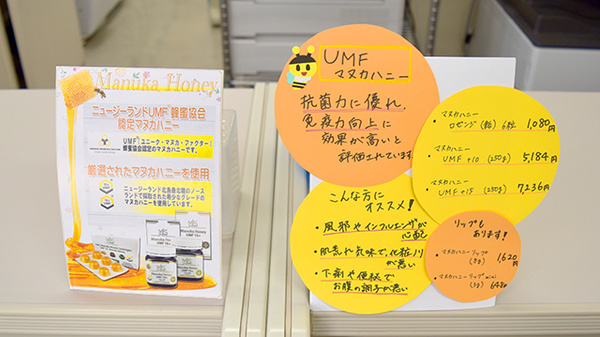 Manuka Honey
ニュージーランドUMF蜂蜜協会
認定マヌカハニー
UMF(ユニーク・マヌカ・ファクター)
蜂蜜協会認定のマヌカハニーです。
厳選されたマヌカハニーを使用
ニュージーランド北島最北端のノース
ランドで採集された希少なグレードの
マヌカハニーを使用しています。
Manuka Honey
UMF
マヌカハニー
抗菌力に優れ、
免疫力向上に
効果が高いと
評価されています
こんな方に
オススメ!
・風邪やインフルエンザが
心配
・肌荒れ気味で、化粧ノリ
が悪い
・下痢や便秘で
お腹の調子が悪い
・マヌカハニー
ロゼンジ(飴) 6粒 1,080円
・マヌカハニー
UMF+10 (250g) 5,184円
・マヌカハニー
UMF+15 (250g) 7,236円
リップも
あります!
・マヌカハニーリップ
(8g) 1,620円
・マヌカハニーリップmini
(3g) 648円